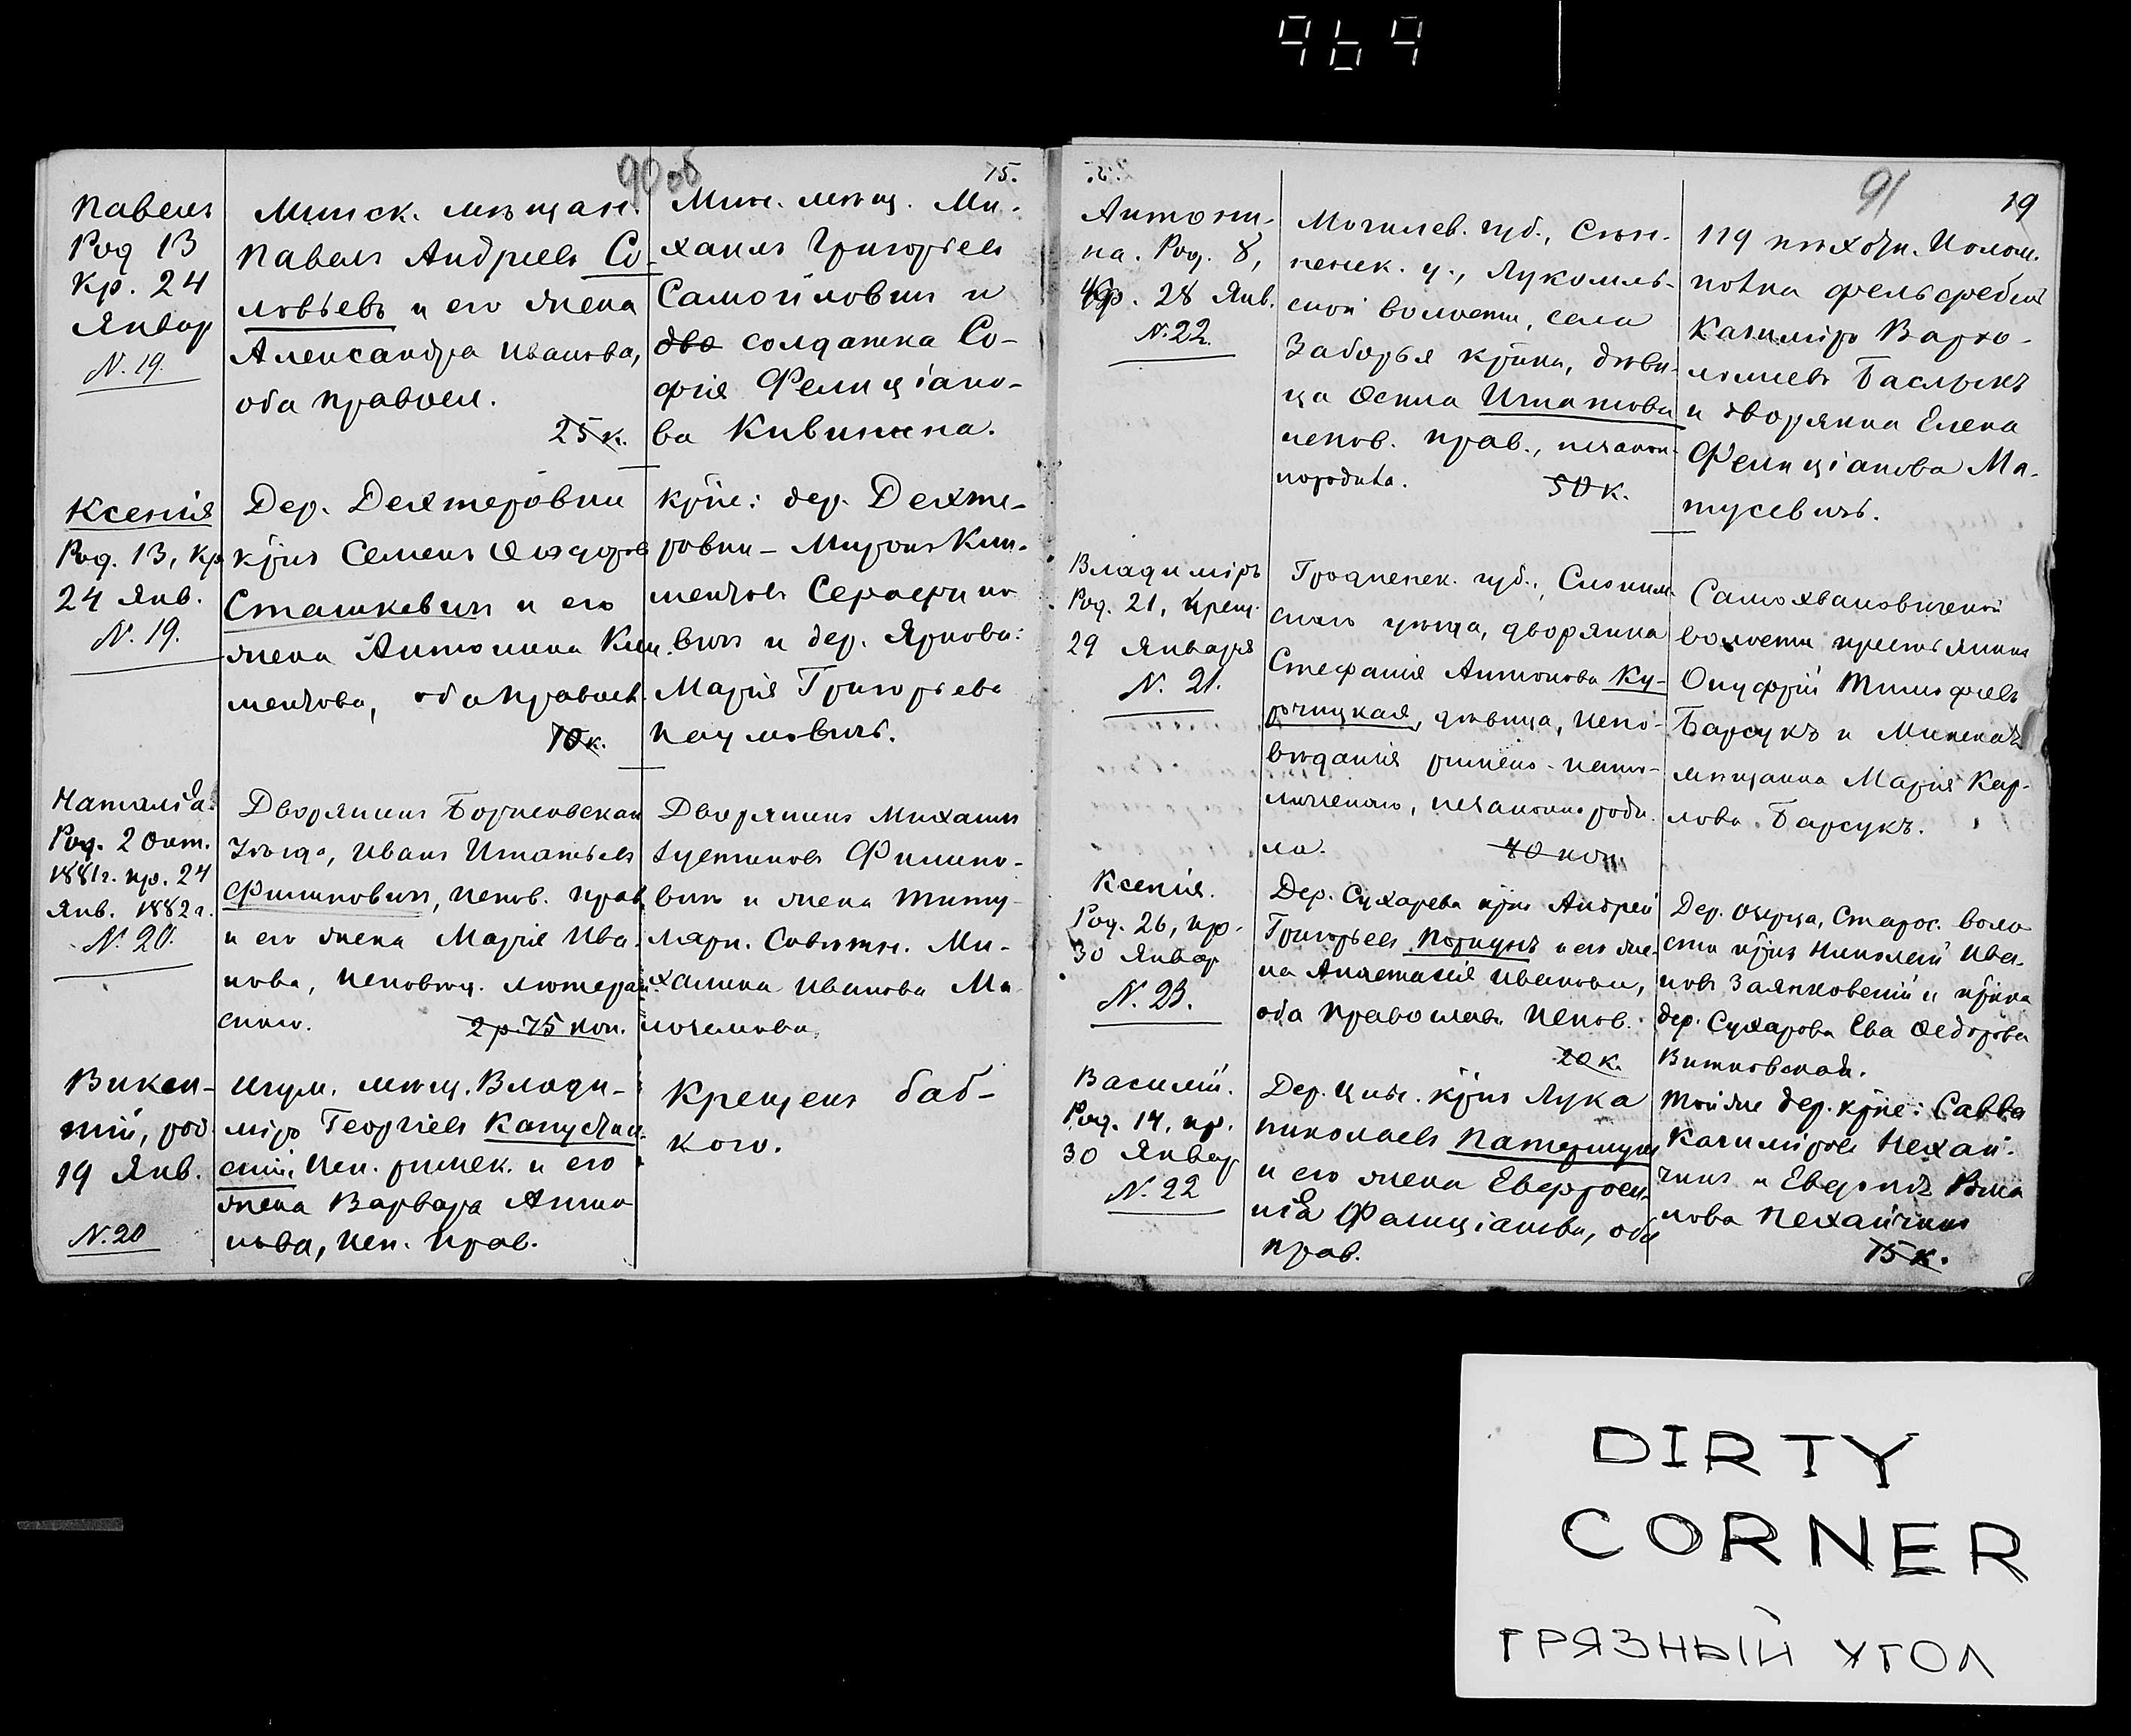 969
90 об
15.
Павелъ
Род 13
Кр. 24
Январ
N. 19.
Минск. мѣщан.
Павелъ Андреевъ Со-
ловьевъ и его жена
Александра Иванова,
оба правосл.
25 к.
Мин. мѣщ. Ми-
хаилъ Григорьев
Самойловичъ и
два солдатка Со-
фія Фелиціано-
ва
Ксенія
Род. 13, кр
24 Янв.
N. 19.
Дер. Дехтеровки
крѣнъ Семенъ
Сташкевичъ и его
жена Антонина Кли
ментова, оба правосл.
10 к.
крѣне: дер. Дехте-
ровки - Миронъ Кли-
ментовъ Серафино
вичъ и дер. Ярково:
Марія Григорьева
Наумовичъ.
Наталія.
Род. 2 Окт.
1881 г. кр. 24
Янв. 1882 г.
N. 20.
Дворянинъ Борисовскаго
уѣзда, Иванъ Игнатьевъ
Филиповичъ, испов. прав.
и его жена Марія Ива-
нова, исповѣд. лютеран
скаго.
2 р. 75 коп.
Дворянинъ Михаилъ
Іустиновъ Филипо-
вичъ и жена Титу
лярн. Совѣтн. Ми-
халина Иванова
Викен-
тій, род.
19 Янв.
N. 20
Игум. мѣщ. Влади-
міръ Георгіевъ Капустин
скій, исп. римск. и его
жена Варвара Анто
нова, исп. прав.
Крещенъ баб-
кою.
91
19
Антони-
на. Род. 8,
Кр. 28 Янв.
N. 22.
Могилев. губ., Сѣн-
ненск. у., Лукомль-
ской волости, села
Заборья крѣнка, дѣви-
ца Ѳекла Игнатова
испов. прав., незакон.
породила.
50 к.
119 пѣхотн. Колом.
полка фельдфебель
Казиміръ Варѳо-
ломеевъ
и дворянка Елена
Фелиціанова Ма-
тусевичъ.
Владиміръ
Род. 21, Крещ.
29 Января
N. 21.
Гродненск. губ., Слоним
скаго уѣзда, дворянка
Стефанія Антонова Ку-
рчицкая, дѣвица, испо-
вѣданія римско-като-
лическаго, незаконно роди-
ла.
40 коп.
Самохваловичской
волости крестьянинъ
Онуфрій Тимофеевъ
Барсукъ и Минская
мѣщанка Марія Кар-
лова Барсукъ.
Ксенія.
Род. 26, кр.
30 Январ
N. 23.
Дер. Сухарева крѣнъ Андрей
Григорьевъ и его же-
на Анастасія Иванова,
оба православ. испов.
20 к.
Дер. Озерца, Старос. воло
сти крѣнъ Николай Ива-
новъ Заянковскій и крѣнка
дер. Сухарова Ева Ѳедорова
Витковская.
Василій.
Род. 14, кр.
30 Январ
N. 22
Дер. Цны. крѣнъ Лука
Николаевъ
и его жена Евфросин
нія Фелиціанова, оба
прав.
Той же дер. крѣне: Савва
Казиміровъ Нехай-
чикъ и
нова Нехайчикъ
15 к.
DIRTY
CORNER
ГРЯЗНЫЙ УГОЛ